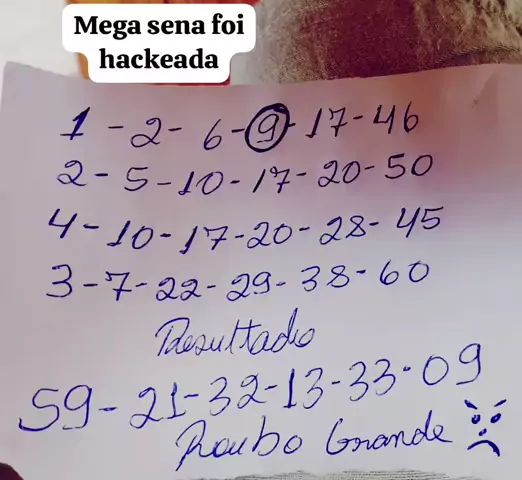 Mega sena foi
hackeada
1 - 2 - 6 - 9 - 17 - 46
2 - 5 - 10 - 17 - 20 - 50
4 - 10 - 17 - 20 - 28 - 45
3 - 7 - 22 - 29 - 38 - 60
Resultado
59 - 21 - 32 - 13 - 33 - 09
Roubo Grande